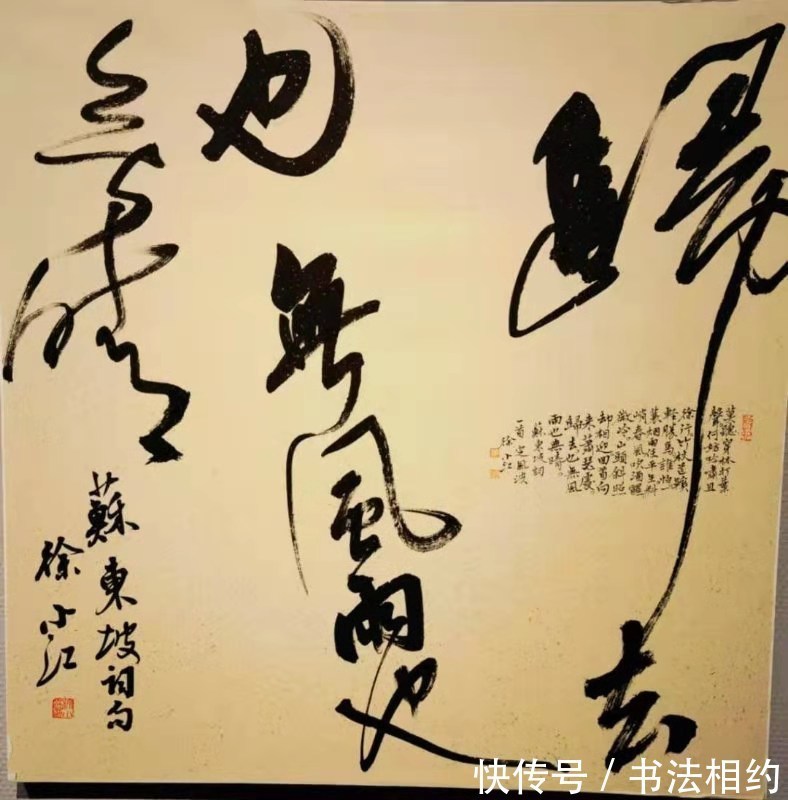 歸去
也無風雨也
无晴
蘇東坡词句
徐小江
莫聽穿林打葉
聲何妨吟嘯且
徐行竹杖芒鞋
輕勝馬誰怕一
蓑烟雨任平生料
峭春風吹酒醒
微冷山頭斜照
却相迎回首向
来蕭瑟處
歸去也無風
雨也無晴
蘇東坡詞
一首定風波
徐小江
快传号 / 书法相约